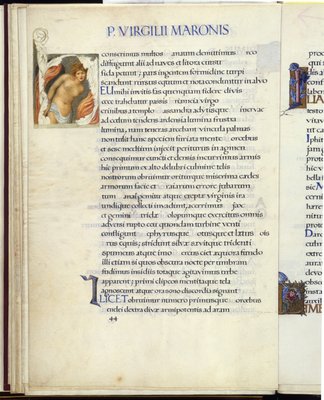 P. VIRGILII MARONIS
conserimus multos anaum demittimus orco
diffugiunt alii ad naves et litora cursu
fida petunt; pars ingentem formidine turpi
scandunt rursus equum et nota conduntur in alvo
EU nihil invitis fas quenquam fidere divis
ecce trahebatur passis riameia virgo
crinibus a templo assandra adytisque inervae
ad caelum tendens ardentia lumina frustra
lumina, nam teneras arcebant vincula palmas
non tulit hanc speciem furiata mente orebus
et sese medium iniecit periturus in agmen
consequimur cuncti et densis incurrimus armis
hic primum ex alto delubri culmine telis
nostrorum obruimur oriturque miserima caedes
armorum facie et raiarum errore jubarum
tum anai gemitu atque ereptae virginis ira
undique collecti invadunt, acerrimus aiax
et gemini tridae olopumque exercitus omnis
adversi rupto ceu quondam turbine venti
confligunt ephyrusque otusque et laetus ois
urus equis; stridunt silvae saevitque tridenti
spumeus atque imo ereus ciet aequora fundo
illi etiam si quos obscura nocte per umbram
fudimus insidiis totaque agitavimus urbe
apparent; primi clipeos mentitaque tela
agnoscunt atque ora sono discordia signant
ILICET obruimur numero primusque orebus
enelei dextra divae armipotentis ad aram